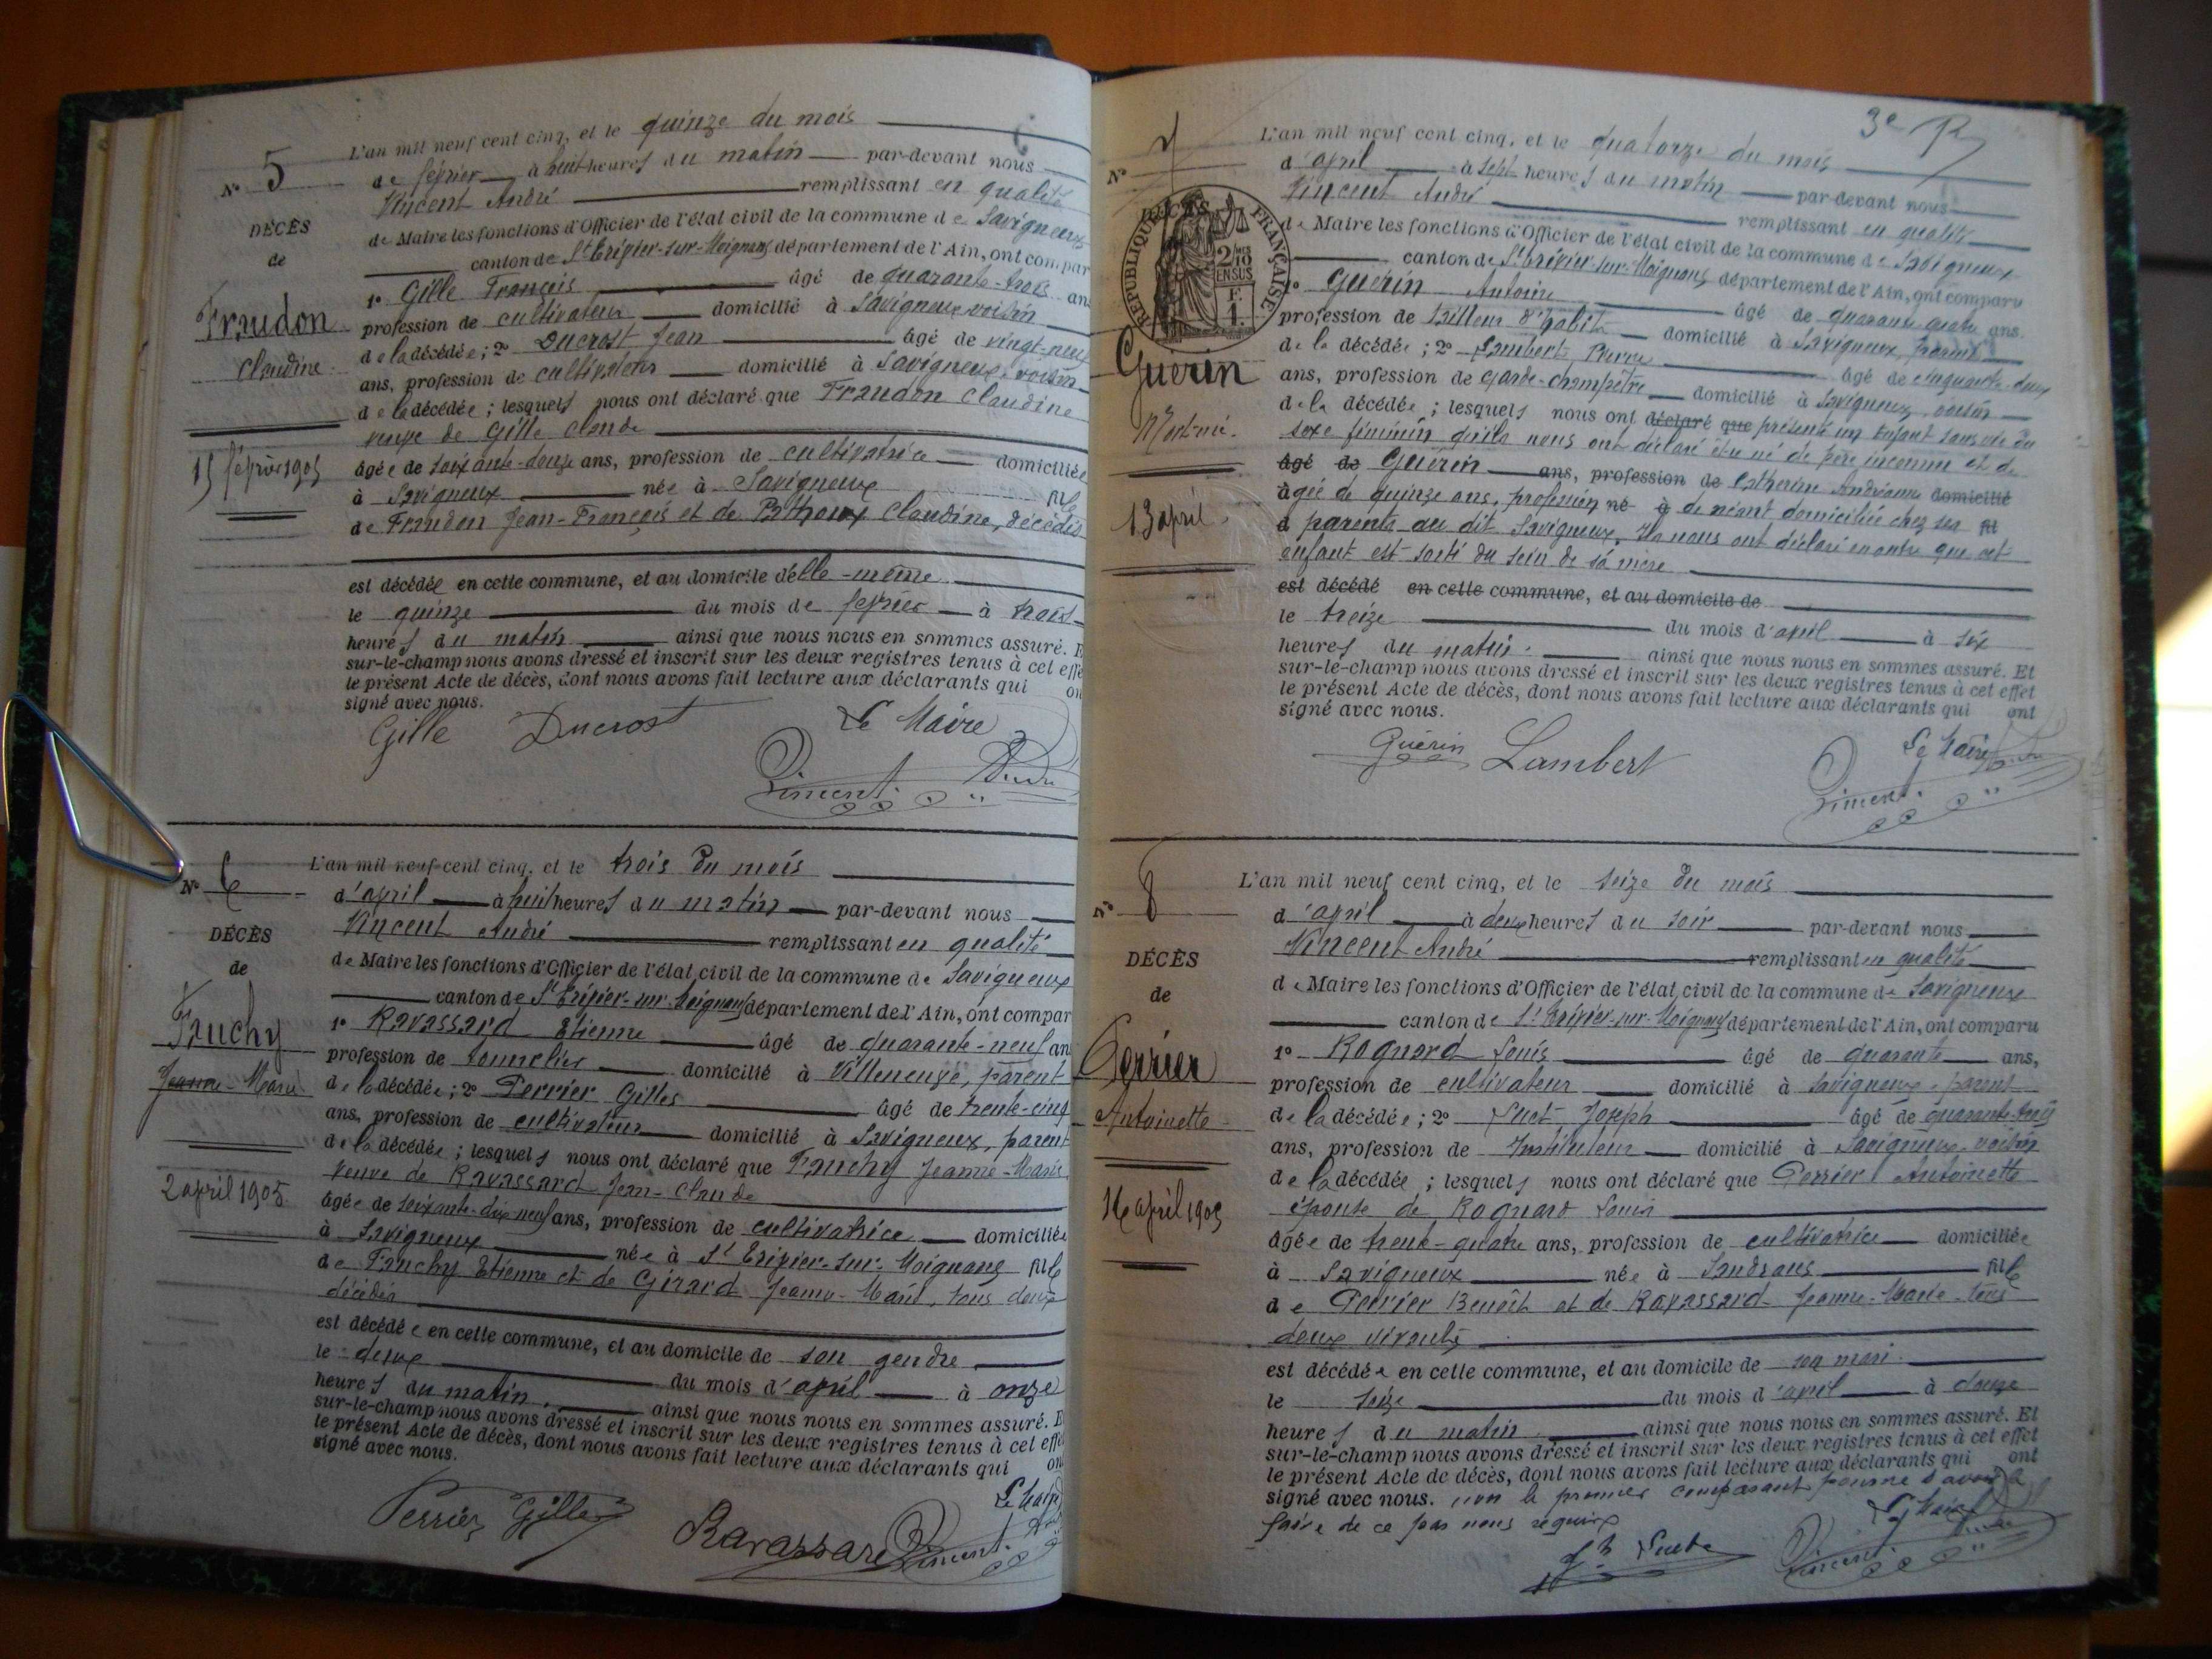 L'an mil neuf cent cinq, et le quinze du mois
N° 5
de février à huit heures du matin par-devant nous
Vincent André remplissant en qualité
DÉCÈS
de Maire les fonctions d'Officier de l'état civil de la commune de Savigneux
de
canton de St Trivier-sur-Moignans département de l'Ain, ont compar
1° Gille François âgé de quarante-trois ans
Fraudon
profession de cultivateur domicilié à Savigneux voisin
Claudine
de la décédée; 2° Ducrost Jean âgé de vingt-neuf
ans, profession de cultivateur domicilié à Savigneux, voisin
de la décédée; lesquels nous ont déclaré que Fraudon Claudine
veuve de Gille Claude
15 février 1905
âgée de soixante-douze ans, profession de cultivatrice domiciliée
à Savigneux née à Savigneux fille
de Fraudon Jean-François et de Claudine, décédés
est décédée en cette commune, et au domicile d'elle-même
le quinze du mois de février à trois
heures du matin ainsi que nous nous en sommes assuré. E
sur-le-champ nous avons dressé et inscrit sur les deux registres tenus à cet effe
le présent Acte de décès, dont nous avons fait lecture aux déclarants qui on
signé avec nous.
Gille Ducrost Le Maire
Vincent André
L'an mil neuf cent cinq, et le trois du mois
N° 6
d'avril à huit heures du matin par-devant nous
Vincent André remplissant en qualité
DÉCÈS
de Maire les fonctions d'Officier de l'état civil de la commune de Savigneux
de
canton de St Trivier-sur-Moignans département de l'Ain, ont compar
1° Ravassard Etienne âgé de quarante-neuf an
Fauchy
profession de tonnelier domicilié à Villeneuve, parent
Jeanne-Marie
de la décédée; 2° Perrier Gilles âgé de trente-cinq
ans, profession de cultivateur domicilié à Savigneux, parent
de la décédée; lesquels nous ont déclaré que Fauchy Jeanne-Marie
veuve de Ravassard Jean-Claude
2 avril 1905
âgée de soixante-dix neuf ans, profession de cultivatrice domiciliée
à Savigneux née à St Trivier-sur-Moignans fille
de Fauchy Etienne et de Girard Jeanne-Marie, tous deux
décédés
est décédée en cette commune, et au domicile de son gendre
le deux du mois d'avril à onze
heures du matin ainsi que nous nous en sommes assuré. E
sur-le-champ nous avons dressé et inscrit sur les deux registres tenus à cet effe
le présent Acte de décès, dont nous avons fait lecture aux déclarants qui on
signé avec nous.
Le Maire
Perrier Gilles Ravassard Vincent
3e R
L'an mil neuf cent cinq, et le quatorze du mois
N° 7
d'avril à sept heures du matin par-devant nous
Vincent André remplissant en qualité
DÉCÈS
RÉPUBLIQUE FRANÇAISE
2/10 EN SUS
F. 1.
de Maire les fonctions d'Officier de l'état civil de la commune de Savigneux
canton de St Trivier-sur-Moignans département de l'Ain, ont comparu
1° Guérin Antoine âgé de quarante quatre ans.
profession de tailleur d'habits domicilié à Savigneux, parent
Guérin
de la décédée; 2° Lambert Pierre âgé de cinquante-deux
ans, profession de garde-champêtre domicilié à Savigneux, voisin
Mort-né.
de la décédée; lesquels nous ont déclaré que présenté un enfant sans vie du
sexe féminin qu'ils nous ont déclaré être né de père inconnu et de
âgé de Guérin ans, profession de Catherine Andréanne domicilié
13 avril
âgée de quinze ans, profession né à de néant domiciliée chez ses fil
d parents au dit Savigneux. Ils nous ont déclaré en outre que cet
enfant est sorti du sein de sa mère
est décédé en cette commune, et au domicile de
le treize du mois d'avril à six
heures du matin. ainsi que nous nous en sommes assuré. Et
sur-le-champ nous avons dressé et inscrit sur les deux registres tenus à cet effet
le présent Acte de décès, dont nous avons fait lecture aux déclarants qui ont
signé avec nous.
Guérin Lambert Le Maire
Vincent André
L'an mil neuf cent cinq, et le seize du mois
N° 8
d'avril à deux heures du soir par-devant nous
Vincent André remplissant en qualité
DÉCÈS
de Maire les fonctions d'Officier de l'état civil de la commune de Savigneux
de
canton de St Trivier-sur-Moignans département de l'Ain, ont comparu
1° Rognard Louis âgé de quarante ans,
Perrier
profession de cultivateur domicilié à Savigneux, parent
Antoinette
de la décédée; 2° Joseph âgé de quarante-trois
ans, profession de Instituteur domicilié à Savigneux, voisin
de la décédée; lesquels nous ont déclaré que Perrier Antoinette
épouse de Rognard Louis
16 avril 1905
âgée de trente-quatre ans, profession de cultivatrice domiciliée
à Savigneux née à Sandrans fille
de Perrier Benoît et de Ravassard Jeanne-Marie tous
deux vivants
est décédée en cette commune, et au domicile de son mari.
le seize du mois d'avril à douze
heures du matin ainsi que nous nous en sommes assuré. Et
sur-le-champ nous avons dressé et inscrit sur les deux registres tenus à cet effet
le présent Acte de décès, dont nous avons fait lecture aux déclarants qui ont
signé avec nous. non le premier comparant pour ne savoir le
faire de ce par nous requis
Le Maire
Vincent André